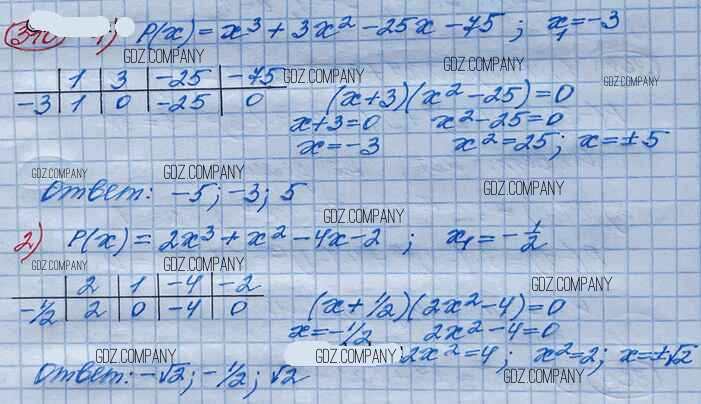 1) P(x) = x³ + 3x² - 25x - 75 ; x₁ = -3
GDZ.COMPANY GDZ.COMPANY
1 3 -25 -75 GDZ.COMPANY GDZ.COMPANY
-3 1 0 -25 0 (x+3)(x²-25)=0
GDZ.COMPANY x+3=0 x²-25=0
x=-3 x²=25; x=±5
GDZ.COMPANY GDZ.COMPANY
Ответ: -5; -3; 5 GDZ.COMPANY
GDZ.COMPANY
2) P(x) = 2x³ + x² - 4x - 2 ; x₁ = -1/2
GDZ.COMPANY GDZ.COMPANY
2 1 -4 -2 GDZ.COMPANY
-1/2 2 0 -4 0 (x+1/2)(2x²-4)=0
GDZ.COMPANY x=-1/2 2x²-4=0
GDZ.COMPANY GDZ.COMPANY 2x²=4; x²=2; x=±√2
Ответ: -√2; -1/2; √2 GDZ.COMPANY